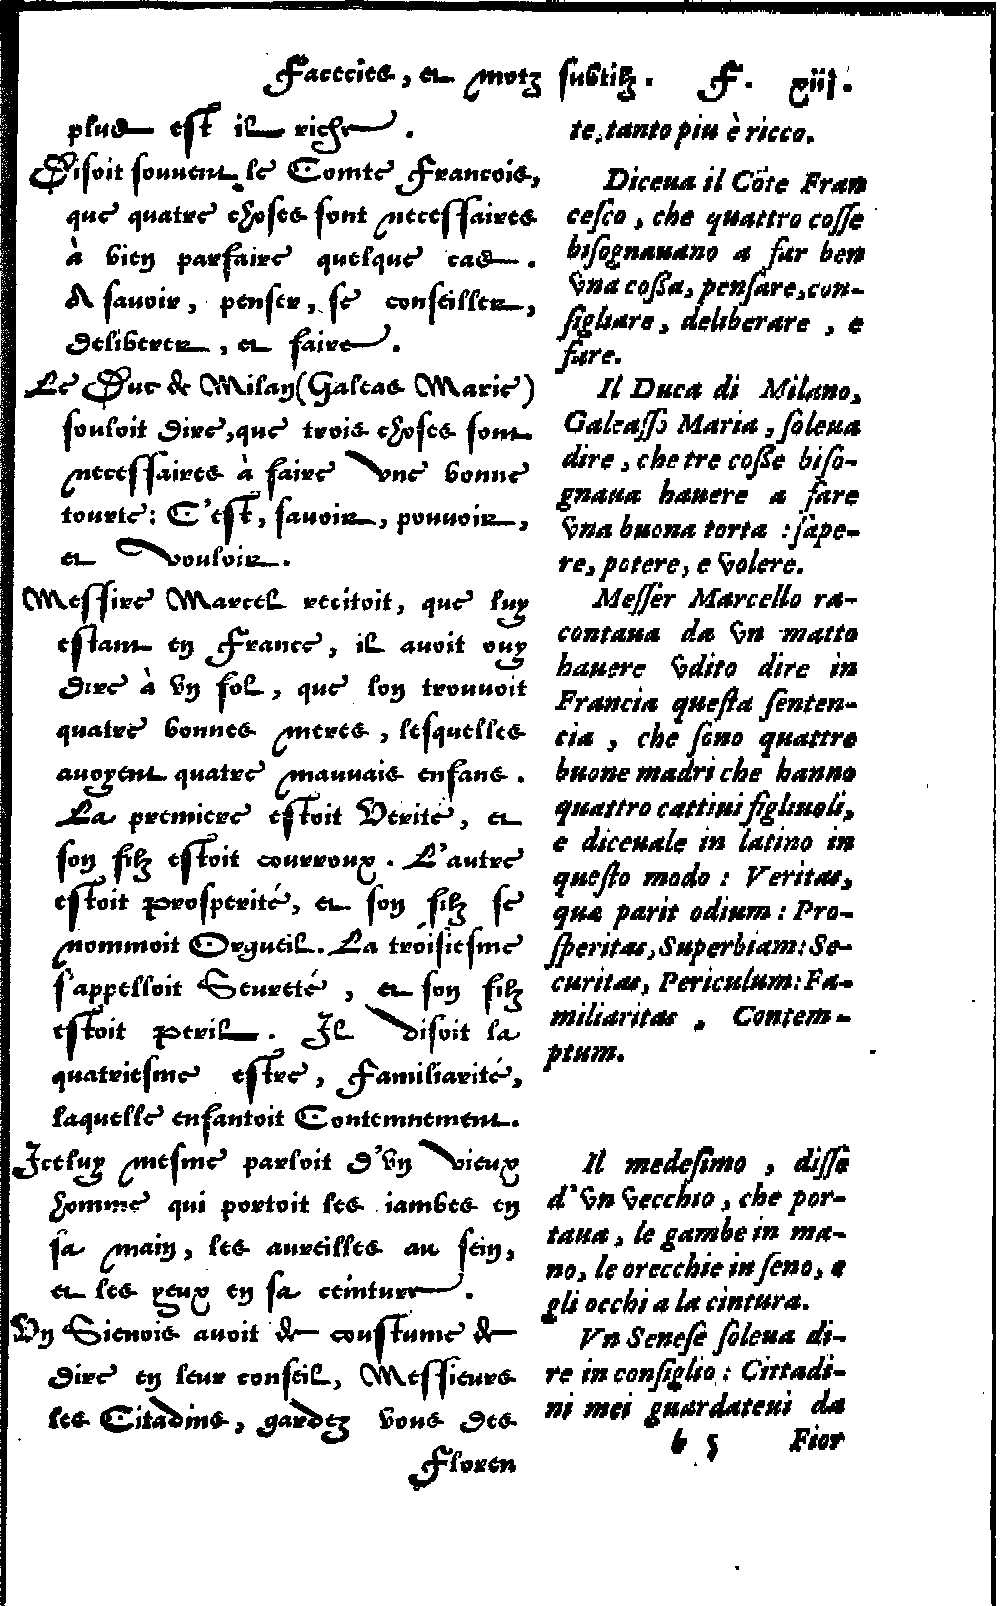 Facecies, et motz subtilz. F. xiij.
plus est il riche.
Disoit souuent le Comte Francois,
que quatre choses sont necessaires
à bien parfaire quelque cas.
A savoir, penser, se conseiller,
deliberer, et faire.
Le Duc de Milan (Galeas Marie)
souloit dire, que trois choses sont
necessaires à faire vne bonne
tourte: C'est, savoir, pouvoir,
et vouloir.
Messire Marcel recitoit, que luy
estant en France, il avoit ouy
dire à vn fol, que lon trouuoit
quatre bonnes meres, lesquelles
auoyent quatre mauuais enfans.
La premiere estoit Verité, et
son filz estoit courroux. L'autre
estoit prosperité, et son filz se
nommoit Orgueil. La troisiesme
s'appelloit Seureté, et son filz
estoit peril. Il disoit la
quatriesme estre, Familiarité,
laquelle enfantoit Contemnement.
Iceluy mesme parloit d'vn vieux
homme qui portoit les iambes en
sa main, les aureilles au sein,
et les yeux en sa ceinture.
Vn Sienois avoit de coustume de
dire en leur conseil, Messieurs
les Citadins, gardez vous des
Floren
te, tanto piu è ricco.
Diceua il Cõte Fran
cesco, che quattro cosse
bisognauano a far ben
vna coßa, pensare, con-
sigliare, deliberare, e
fare.
Il Duca di Milano,
Galeasso Maria, soleua
dire, che tre coße biso-
gnaua hauere a fare
vna buona torta: sape-
re, potere, e volere.
Messer Marcello ra-
contaua da vn matto
hauere vdito dire in
Francia questa senten-
cia, che sono quattro
buone madri che hanno
quattro cattiui figliuoli,
e diceuale in latino in
questo modo: Veritas,
quæ parit odium: Pro-
speritas, Superbiam: Se-
curitas, Periculum: Fa-
miliaritas, Contem-
ptum.
Il medesimo, disse
d'vn vecchio, che por-
taua, le gambe in ma-
no, le orecchie in seno, e
gli occhi a la cintura.
Vn Senese soleua di-
re in consiglio: Cittadi-
ni mei guardateui da
b 5 Fior